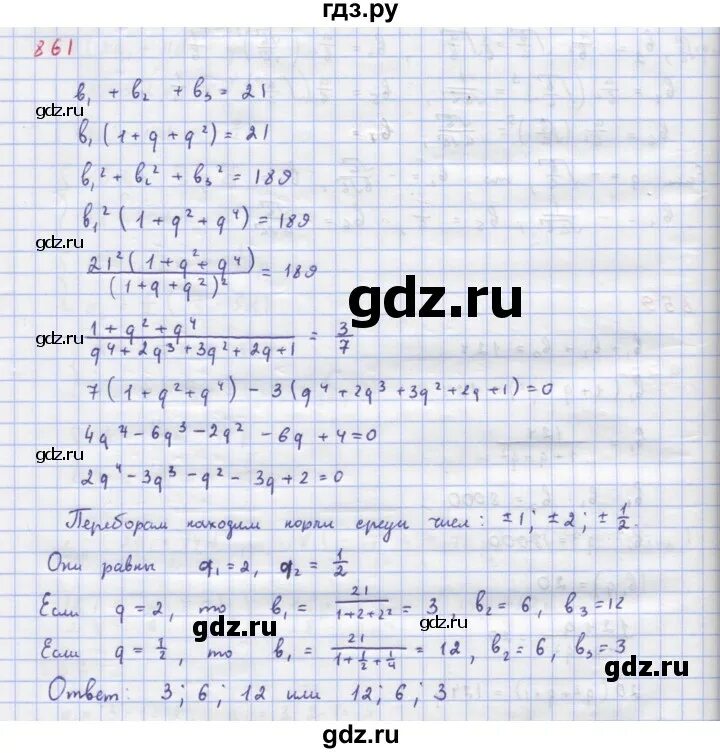 гдз.ру
861
b₁ + b₂ + b₃ = 21
gdz.ru
b₁(1+q+q²) = 21
gdz.ru
b₁² + b₂² + b₃² = 189
b₁²(1+q²+q⁴) = 189
gdz.ru
21²(1+q²+q⁴)/(1+q+q²)² = 189
gdz.ru
(1+q²+q⁴)/(q⁴+2q³+3q²+2q+1) = 3/7
gdz.ru
7(1+q²+q⁴) - 3(q⁴+2q³+3q²+2q+1) = 0
4q⁴-6q³-2q² -6q+4=0
gdz.ru
2q⁴-3q³-q²-3q+2=0
Перебором находим корни среди чисел: ±1; ±2; ±1/2.
Они равны q₁=2, q₂=1/2
gdz.ru
Если q=2, то b₁ = 21/(1+2+2²) = 3, b₂=6, b₃=12
gdz.ru
gdz.ru
Если q=1/2, то b₁ = 21/(1+1/2+1/4) = 12, b₂=6, b₃=3
gdz.ru
gdz.ru
Ответ: 3; 6; 12 или 12; 6; 3
gdz.ru